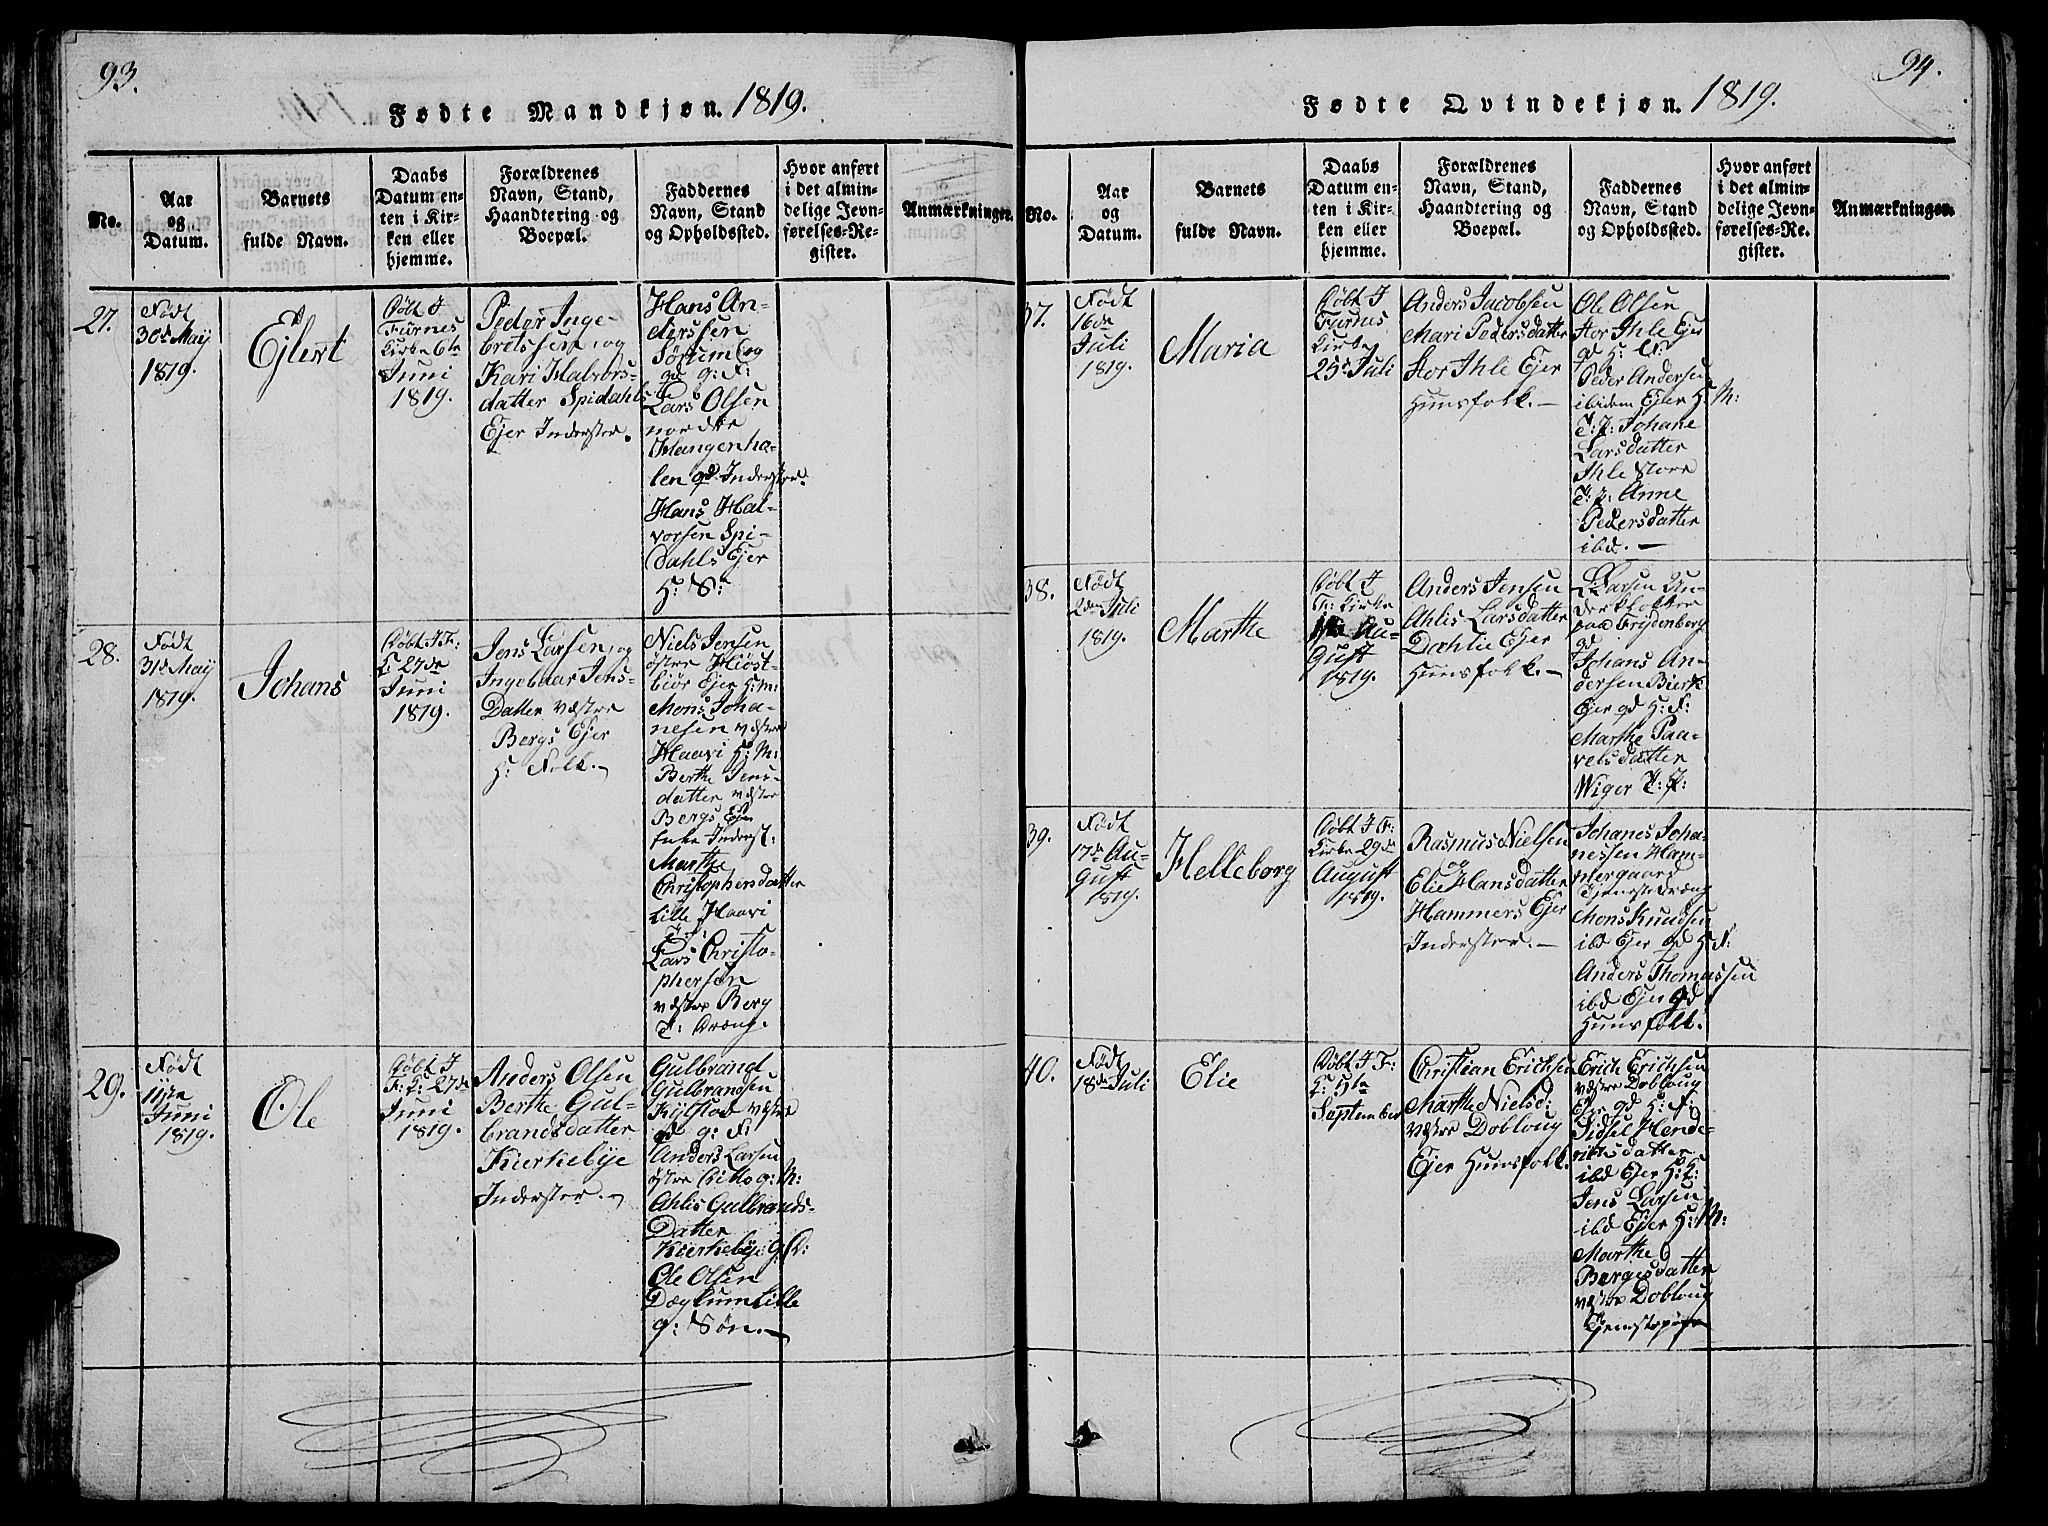 93.
Fødte Mandkjøn. 1819.
No.
Aar
og
Datum.
Barnets
fulde Navn.
Daabs
Datum en-
ten i Kir-
ken eller
hjemme.
Forældrenes
Navn, Stand,
Haandtering og
Boepæl.
Faddernes
Navn, Stand
og Opholdssted.
Hvor anført
i det almin-
delige Jevn-
førelses-Re-
gister.
Anmærkninger.
27.
Født
30de Maij
1819.
Ejlert
Døbt I
Furnes
Kirke 6te
Juni
1819.
Peder Inge-
bretssen, og
Kari Halvors-
datter Spidahls
Ejer Inderster.
Hans An-
derssen
og
gd g: F:
Lars Olsen
nordre
Hangenho-
len gd Inderster.
Hans Hal-
vorsen Spi-
dahls Ejer
H: S:
28.
Født
31de Maij
1819.
Johans
Døbt I F:
K 27de
Juni
1819.
Jens Larsen, og
Ingebaar Jens-
Datter væstre
Bergs Ejer
H: Folk.
Niels Jensen
østre Hiøst-
biør Ejer H: M:
Mons Joha-
nesen væstre
Haavi H: M:
Berthe Jens-
datter væstre
Bergs Ejer
Enke Inderst:
Marthe
Christophersdatter
Lille Haavi
Lars Christo-
phersøn
væstre Berg
T: Dræng.
29.
Født
11te
Juni
1819.
Ole
Døbt I
F: K: 27de
Juni
1819.
Anders Olsen
Berthe Gul-
brandsdatter
Kierkebye
Inderster.
Gulbrand
Gulbrandsen
Kylstad væstre
gd g: F:
Anders Larsen
østre Ditto g: M:
Ahlis Gulbrands-
Datter
Kierkebye g: K:
Ole Olsen
Dæglum Lille
g: Søn.
94.
Fødte Qvindekjøn. 1819.
No.
Aar
og
Datum.
Barnets
fulde Navn.
Daabs
Datum en-
ten i Kir-
ken eller
hjemme.
Forældrenes
Navn, Stand,
Haandtering og
Boepæl.
Faddernes
Navn, Stand
og Opholdssted.
Hvor anført
i det almin-
delige Jevn-
førelses-Re-
gister.
Anmærkninger.
37.
Født
16de
Juli
1819.
Maria
Døbt I
Kirke
25de Juli
Anders Jacobsen
Mari Pedersdatter
Stor Ihle Ejer
Huusfolk.
Ole Olsen
Stor Ihle Ejer
gd H: F:
Peder Andersen
ibidem Ejer H: M:
T: P: Johane
Larsdatter
Ihle Store
T: P: Anne
Pedersdatter
ibd.
38.
Født
2den Juli
1819.
Marthe
Døbt I
F: Kirke
1ste Au-
gust
1819.
Anders Jensen
Ahlis Larsdatter
Dæhlie Ejer
Huusfolk.
Larsen Un-
derklokker
paa Frydenberg
gd
Johans An-
dersen Bierke
Ejer gd H: F:
Marthe Paa-
velsdatter
Wiger T: P:
39.
Født
17de Au-
gust
1819.
Helleborg
Døbt I F:
Kirke 29de
August
1819.
Rasmus Nielsen
og
Elie Hansdatter
Hammers Ejer
Inderster.
Johanes Joha-
nessen Ham-
mergaard
Tjenstedræng
Mons Knudsen
ibd Ejer gd H: F:
Anders Thomassen
ibd Ejer gd
Huusfolk.
40.
Født
18de Juli
Elie
Døbt I F:
K: 5te
September
Christian Erichsen
Marthe Nielsd:
væstre Dobloug
Ejer Huusfolk.
Erich Erichsen
væstre Dobloug
Ejer gd H: F:
Sidsel Hende-
richsdatter
ibd Ejer H: K:
Jens Larsen
ibd Ejer H: M:
Marthe
Børgesdatter
væstre Dobloug
Tjenstepige